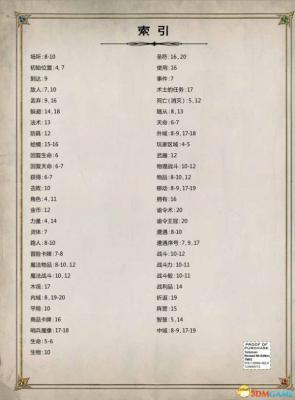 索 引
场所: 8-10
初始位置: 4, 7
到达: 9
敌人: 7, 10
丢弃: 9, 16
躲避: 14, 18
法术: 13
防具: 12
蛤蟆: 15-16
回复生命: 6
回复天命: 6-7
获得: 6-7
去敌: 10
角色: 4, 11
金币: 12
力量: 4, 14
灵体: 7
路人: 8-10
冒险卡牌: 7-8
魔法物品: 8-10, 12
魔法战斗: 10, 12
木筏: 17
内域: 8, 19-20
平局: 10
商品卡牌: 16
哨兵魔像: 17-18
生命: 5-6
生物: 10
圣符: 16, 20
使用: 16
事件: 7
术士的任务: 17
死亡(消灭): 5, 12
随从: 8, 13
天命: 6-7
外域: 8-9, 17-18
玩家区域: 4-5
武器: 12
物理战斗: 10-12
物品: 8-10, 12
移动: 8-9, 17-19
拥有: 16
谕令术: 20
谕令王冠: 20
遭遇: 8-10
遭遇序号: 7, 9, 17
战斗: 10-12
战斗力: 10-11
战斗骰: 10-11
战利品: 14
折返: 19
阵营: 15
智慧: 5, 14
中域: 8-9, 17-19
PROOF OF
PURCHASE
Talisman
3DMGAME